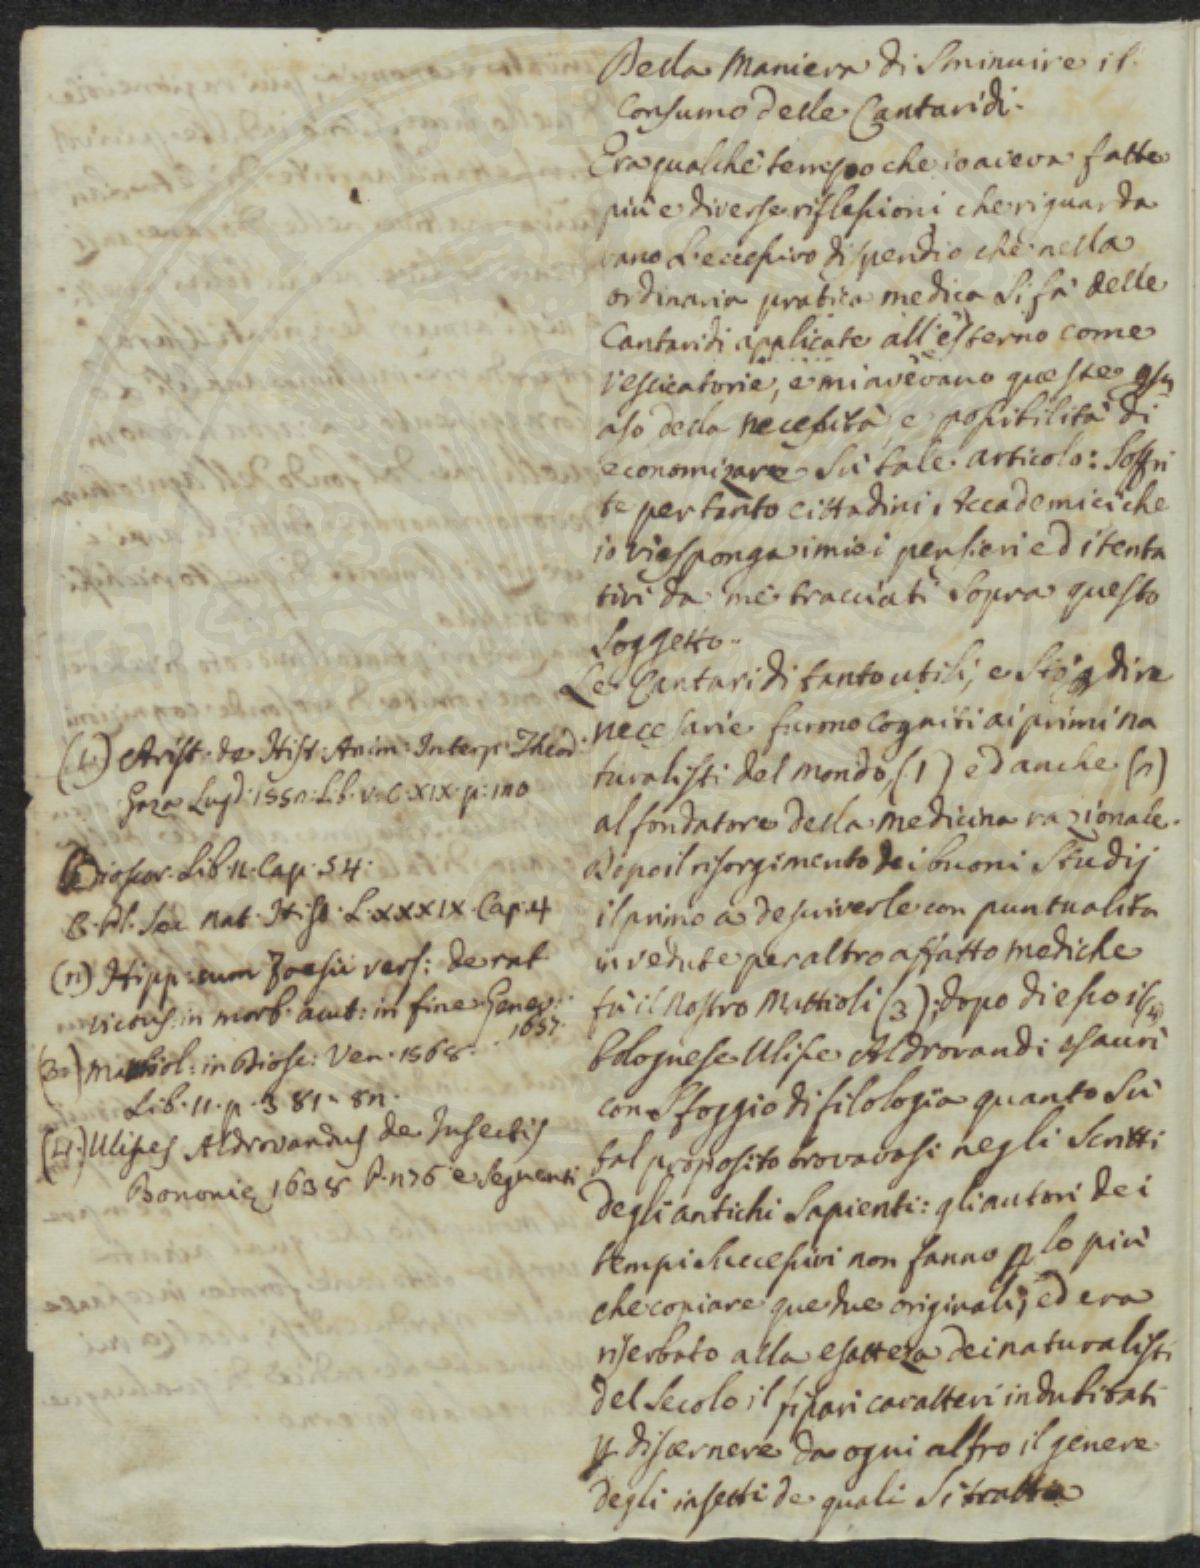 Della Maniera di Sminuire il
Consumo delle Cantaridi.
Era qualche tempo che io aveva fatte
più e diverse riflessioni che riguarda
vano L'eccessivo dispendio che nella
ordinaria pratica medica si fà delle
Cantaridi applicate all'esterno come
vescicatorie, e mi avevano queste
aso della necessità, e possibilità di
economizare sù tale articolo: Soffri
te pertanto cittadini Accademici che
io vi esponga i miei pensieri ed i tenta
tivi da me tracciati sopra questo
Soggetto.
Le Cantaridi tanto utili, e stò dire
necesarie furono cognite ai primi na
turalisti del mondo (1) ed anche (2)
al fondatore della medicina razionale.
Dopo il risorgimento dei buoni Studij
il primo a descriverle con puntualità
in vedute per altro affatto mediche
fù il Nostro Mattioli (3); dopo di esso il (4)
bolognese Ulisse Aldrovandi esaurì
con Sfoggio di filologia quanto sù
tal proposito trovavasi negli Scritti
degli antichi Sapienti: gli autori dei
tempi Successivi non fanno p lo più
che copiare que due originali; ed era
riserbato alla esatteza dei naturalisti
del Secolo il fissari caratteri indubitati
p discernere da ogni altro il genere
degli insetti de quali si tratta
(1) Arist. de Hist. Anim. Interp. Theod.
Gaza Lugd. 1552. Lib. V. C. XIX. p. 120
Dioscor. Lib. II. Cap. 54.
Nat. Hist. L. XXXIX. Cap. 4
(2) Hipp. cum vers: de rat
vicus: in morb. acut: in fine Genev.
1657.
(3) Matthiol: in Diosc: Ven. 1568.
Lib. II. p. 381. 82.
(4) Ulisses Aldrovandus de Insectis
Bononie 1638 P. 476 e segnenti